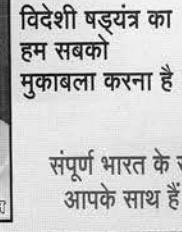 विदेशी षड्यंत्र का
हम सबको
मुकाबला करना है
संपूर्ण भारत के
आपके साथ हैं